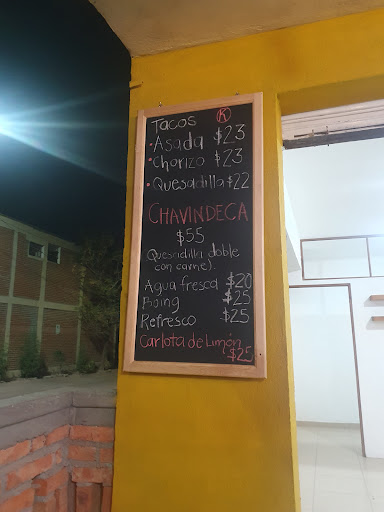 Tacos K
• Asada $23
• Chorizo $23
• Quesadilla $22
CHAVINDECA
$55
Quesadilla doble
con carne).
Agua fresca $20
Boing $25
Refresco $25
Carlota de Limón
$25